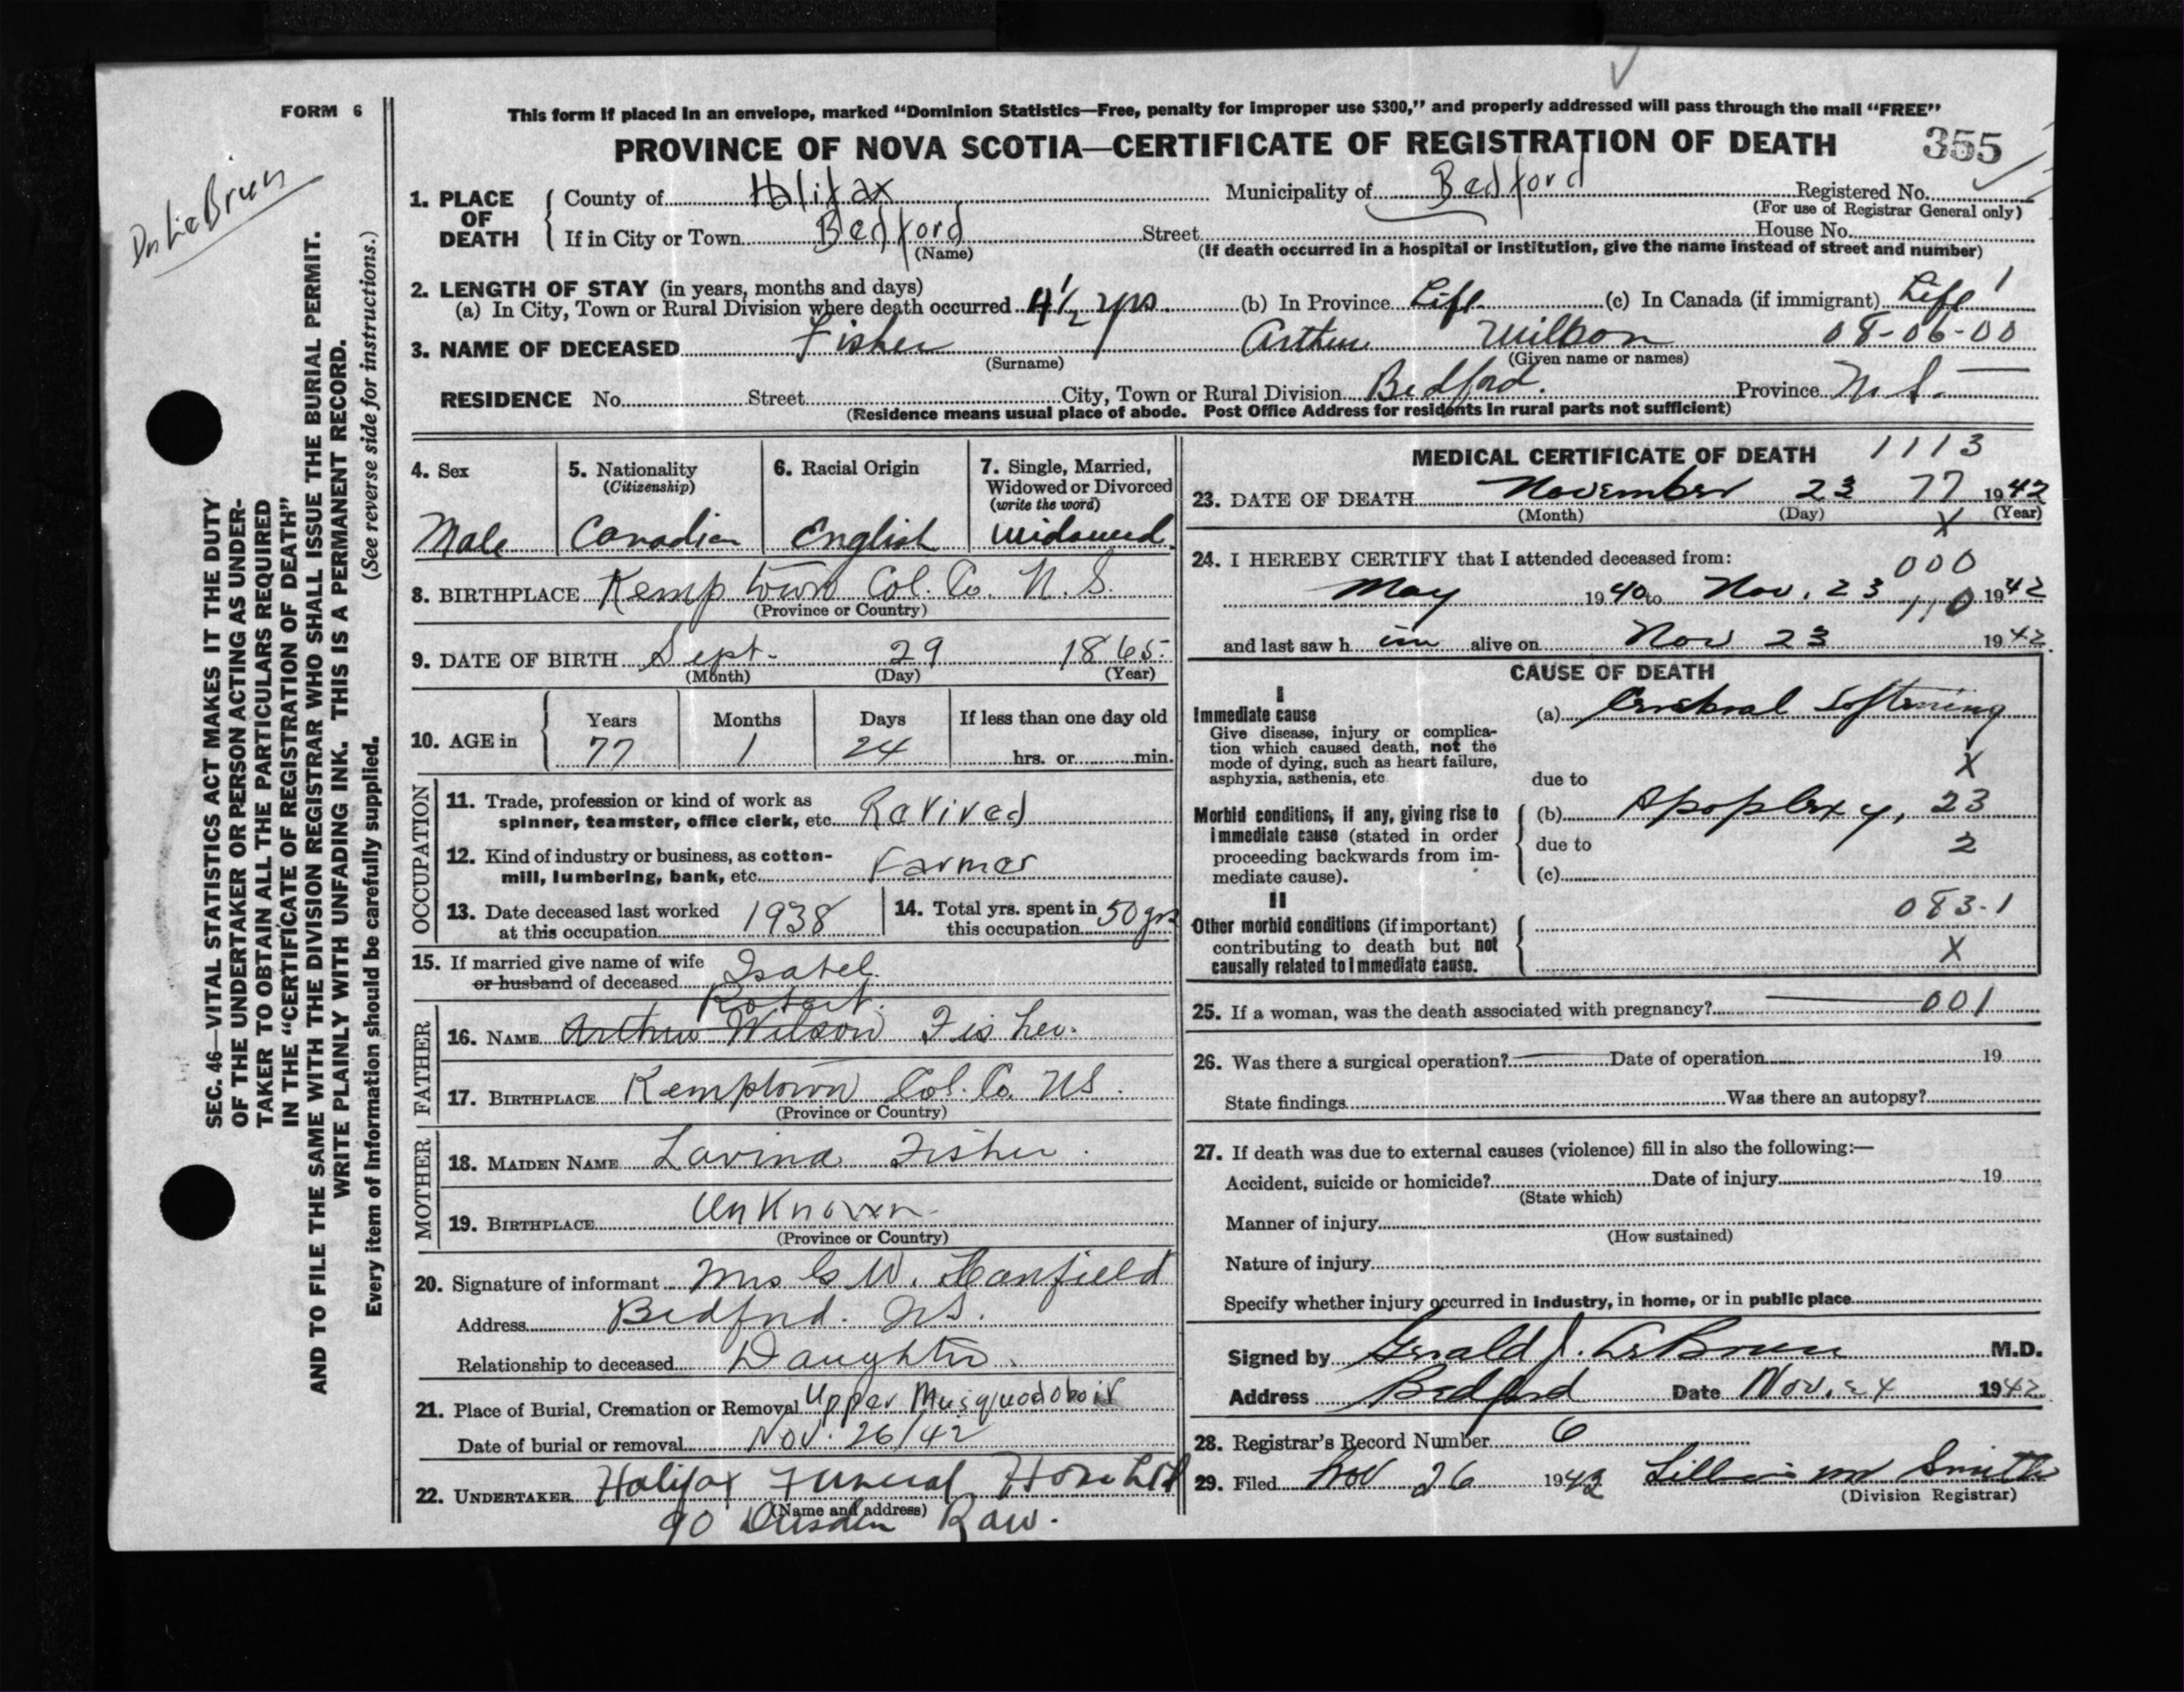 FORM 6
Dr LeBrun
SEC. 46—VITAL STATISTICS ACT MAKES IT THE DUTY
OF THE UNDERTAKER OR PERSON ACTING AS UNDER-
TAKER TO OBTAIN ALL THE PARTICULARS REQUIRED
IN THE "CERTIFICATE OF REGISTRATION OF DEATH"
AND TO FILE THE SAME WITH THE DIVISION REGISTRAR WHO SHALL ISSUE THE BURIAL PERMIT.
WRITE PLAINLY WITH UNFADING INK. THIS IS A PERMANENT RECORD.
Every item of Information should be carefully supplied. (See reverse side for instructions.)
This form if placed in an envelope, marked "Dominion Statistics—Free, penalty for improper use $300," and properly addressed will pass through the mail "FREE"
PROVINCE OF NOVA SCOTIA—CERTIFICATE OF REGISTRATION OF DEATH 355
1. PLACE OF DEATH County of Halifax Municipality of Bedford Registered No.
(For use of Registrar General only)
If in City or Town Bedford Street House No.
(Name) (If death occurred in a hospital or institution, give the name instead of street and number)
2. LENGTH OF STAY (in years, months and days)
(a) In City, Town or Rural Division where death occurred 4½ yrs. (b) In Province Life (c) In Canada (if immigrant) Life 1
3. NAME OF DECEASED Fisher Arthur Wilson 08-06-00
(Surname) (Given name or names)
RESIDENCE No. Street City, Town or Rural Division Bedford. Province N.S.
(Residence means usual place of abode. Post Office Address for residents in rural parts not sufficient)
4. Sex 5. Nationality (Citizenship) 6. Racial Origin 7. Single, Married, Widowed or Divorced (write the word)
Male Canadian English Widowed
8. BIRTHPLACE Kemptown Col. Co. N.S.
(Province or Country)
9. DATE OF BIRTH Sept. 29 1865.
(Month) (Day) (Year)
10. AGE in Years Months Days If less than one day old
77 1 24 hrs. or min.
OCCUPATION
11. Trade, profession or kind of work as
spinner, teamster, office clerk, etc. Retired
12. Kind of industry or business, as cotton-
mill, lumbering, bank, etc. Farmer
13. Date deceased last worked at this occupation 1938 14. Total yrs. spent in this occupation 50 yrs
15. If married give name of wife
or husband of deceased Isabel.
Robert.
FATHER
16. NAME Arthur Wilson Fisher.
17. BIRTHPLACE Kemptown Col. Co. NS.
(Province or Country)
MOTHER
18. MAIDEN NAME Lavina Fisher.
19. BIRTHPLACE UnKnown
(Province or Country)
20. Signature of informant Mrs G W. Hanfield
Address Bedford. NS.
Relationship to deceased Daughter.
21. Place of Burial, Cremation or Removal Upper Musquodoboit
Date of burial or removal Nov. 26/42
22. UNDERTAKER Halifax Funeral Home Ltd
(Name and address)
90 Dresden Row.
MEDICAL CERTIFICATE OF DEATH 1113
23. DATE OF DEATH November 23 77 1942
(Month) (Day) X (Year)
24. I HEREBY CERTIFY that I attended deceased from: 000
May 1940 to Nov. 23 110 1942
and last saw him alive on Nov 23 1942
CAUSE OF DEATH
I
Immediate cause (a) Cerebral Softening
Give disease, injury or complica-
tion which caused death, not the
mode of dying, such as heart failure, X
asphyxia, asthenia, etc. due to
Morbid conditions, if any, giving rise to (b) Apoplexy, 23
immediate cause (stated in order due to 2
proceeding backwards from im-
mediate cause). (c)
II 083-1
Other morbid conditions (if important)
contributing to death but not X
causally related to immediate cause.
25. If a woman, was the death associated with pregnancy? 001
26. Was there a surgical operation? Date of operation 19
State findings Was there an autopsy?
27. If death was due to external causes (violence) fill in also the following:—
Accident, suicide or homicide? Date of injury 19
(State which)
Manner of injury
(How sustained)
Nature of injury
Specify whether injury occurred in industry, in home, or in public place
Signed by Gerald J. LeBrun M.D.
Address Bedford Date Nov. 24 1942
28. Registrar's Record Number 6
29. Filed Nov 26 1942 Lillian M Smith
(Division Registrar)